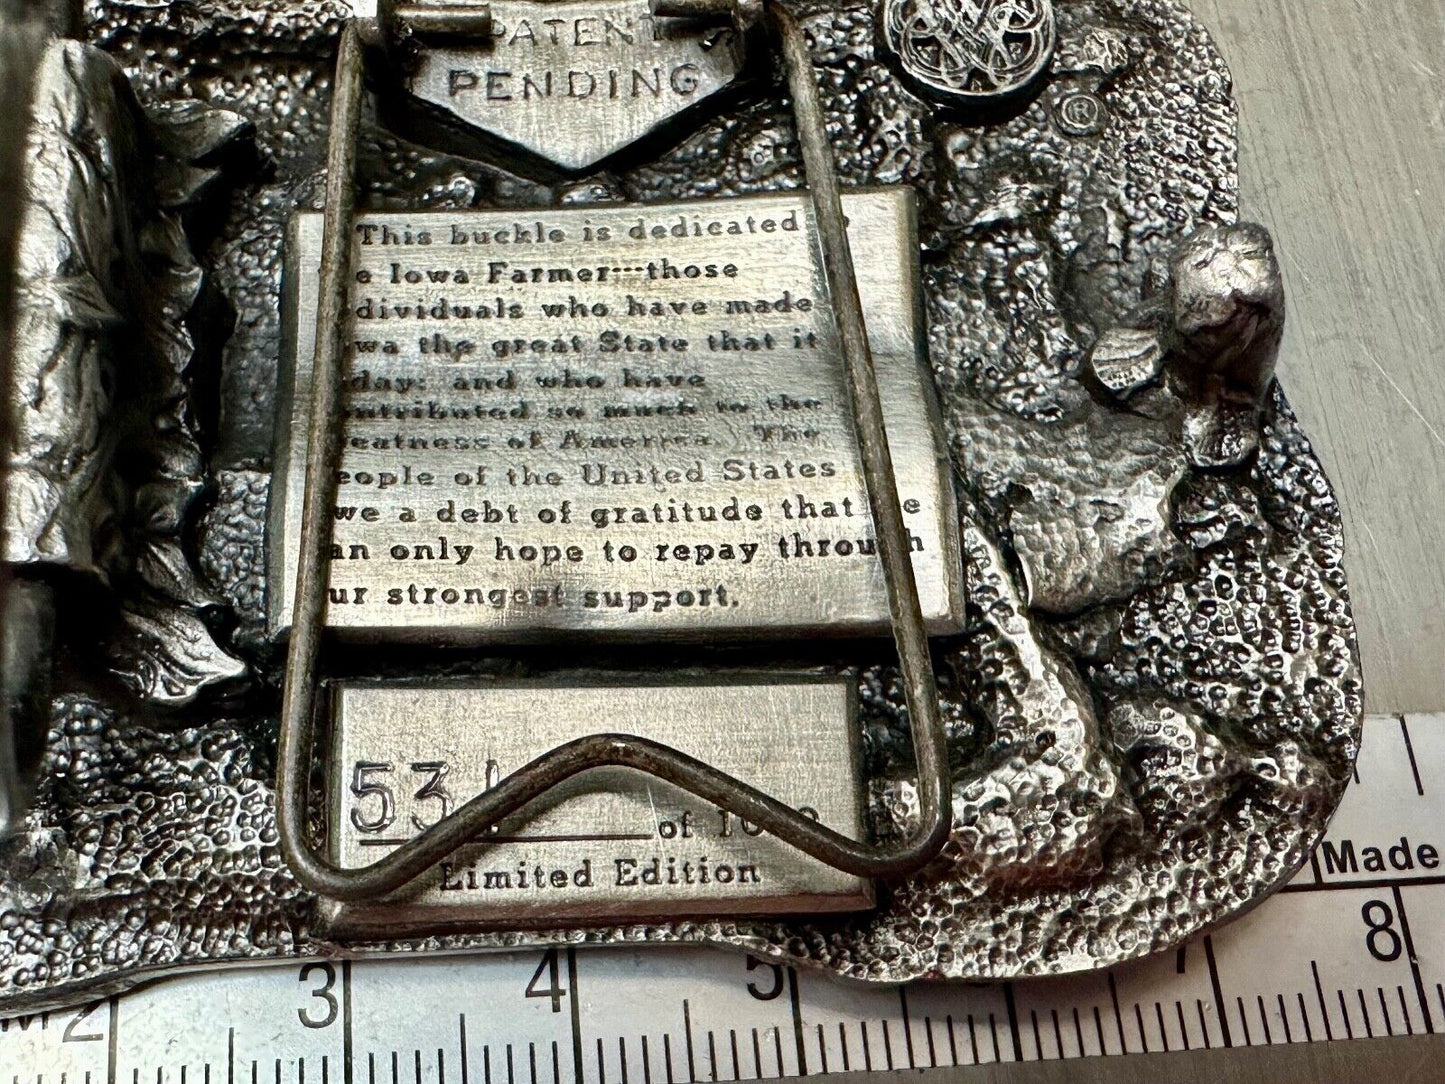 PATENT
PENDING
®
This buckle is dedicated
e Iowa Farmer---those
dividuals who have made
wa the great State that it
day: and who have
ntributed so much to the
eatness of America. The
eople of the United States
we a debt of gratitude that e
an only hope to repay through
ur strongest support.
531
of
Limited Edition
Made
2 3 4 5 7 8